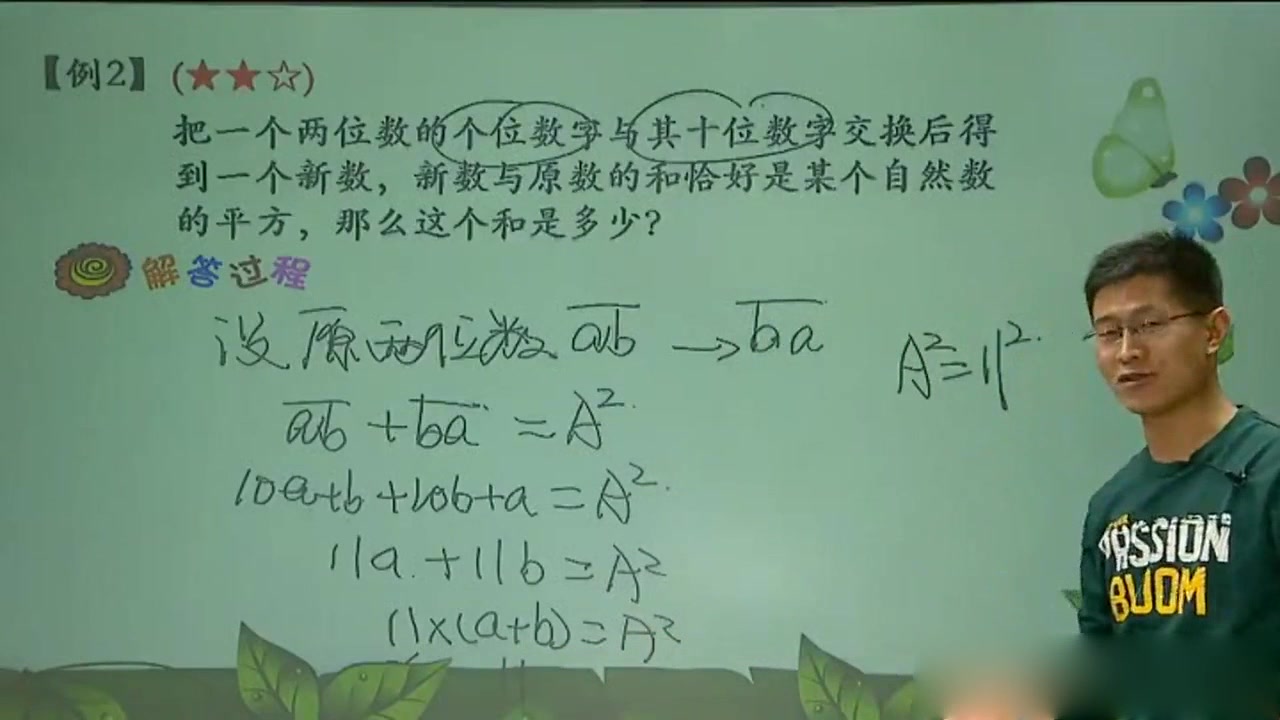 【例2】(★★☆)
把一个两位数的个位数字与其十位数字交换后得
到一个新数，新数与原数的和恰好是某个自然数
的平方，那么这个和是多少？
解答过程
设原两位数 a̅b̅ → b̅a̅
A²=11²
a̅b̅+b̅a̅=A²
10a+b+10b+a=A²
11a+11b=A²
11×(a+b)=A²
11
PASSION
BLOOM